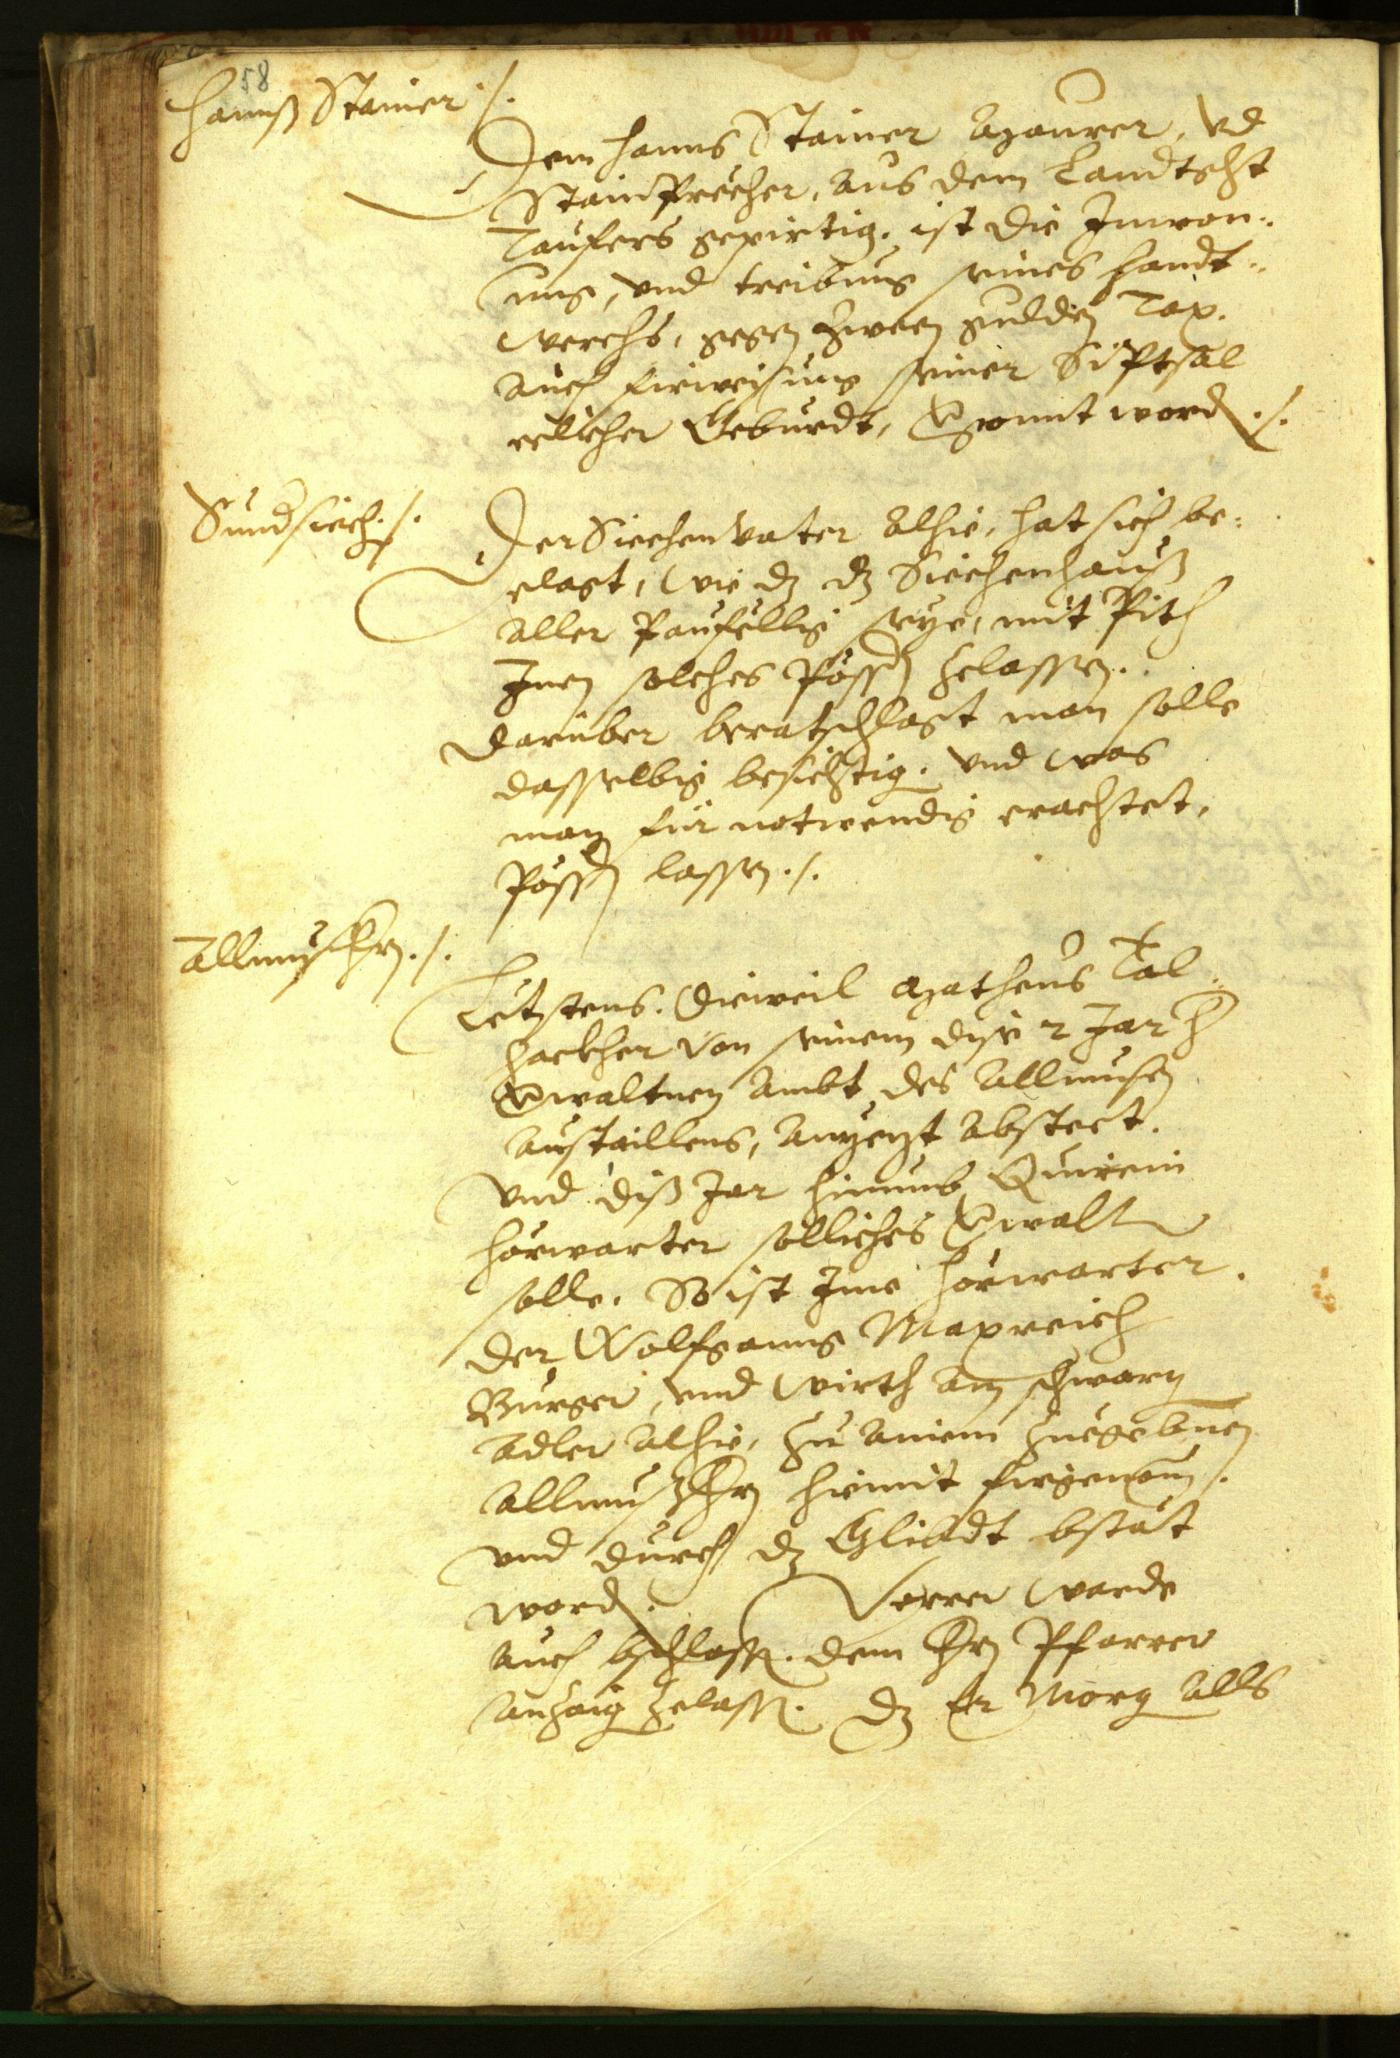 58
Hannß Stainer ./.
Dem Hanns Stainer Maurer, vnd
Stainprecher, aus dem Landtgʒht
Taufers gepirtig, ist die Inwon¬
ung, vnd treibung seines Handt¬
werchs, gegen Zween gulden Tax.
auch firweisung seiner
eelicher Geburdt, Vergonnt word(en) ./.
Sundsiech ./.
Der Siechenvater Alhie, hat sich be¬
clagt, wie dz dz Siechenhauß
aller Paufellig seye, mit Pith
Inen solches Pössern Zelassen.
Darüber beratschlagt man solle
dasselbig besichtig(en). vnd was
man für notwendig erachtet,
Pössern lassen ./.
Allmusherrn ./.
Letstens. Dieweil Matheus Tal¬
hackher von seinem dise 2 Jar
Verwaltnen Ambt des Allmusen
austaillens, anyezt absteet.
vnd diß Jar hinumb Quirein
Hörwarter solliches Verwalten
solle. So ist Ime Hörwarter.
der Wolfgang Maxreich
Burger, vnd Wirth am schwarzn
Adler alhie, Zu ainem Zuegebnen
Allmusherrn hiemit firgenomen.
vnd durch dz Glibdt bstät
word(en). Verrer warde
auch bschlossen. dem Herrn Pfarrer
anzaig(en) Zelassen. Dz er Morg(en) alls